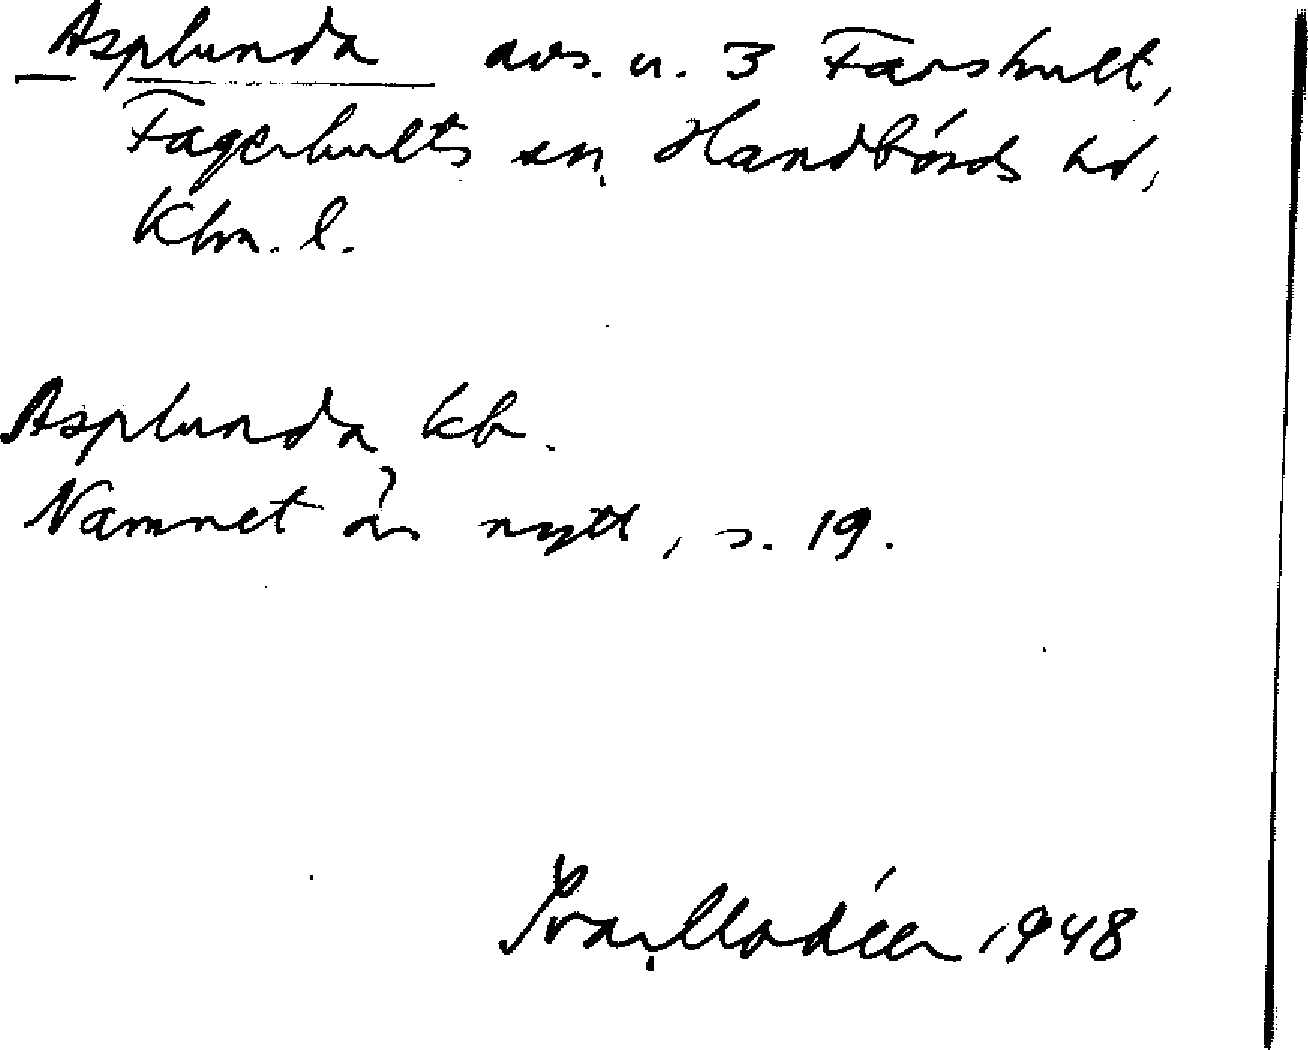 Asplunda avs. u. 3 Farshult,
Fagerhults sn, Handbörds hd,
Klm. l.
Asplunda kb.
Namnet är nytt, s. 19.
Ivar Modéer 1948